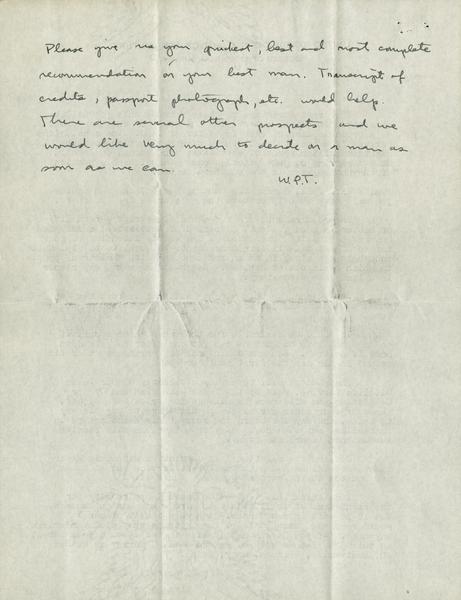 Please give me your quickest, best and most complete
recommendation on your best man. Transcript of
credits, passport photograph, etc. would help.
There are several other prospects and we
would like very much to decide on a man as
soon as we can.
W.P.T.